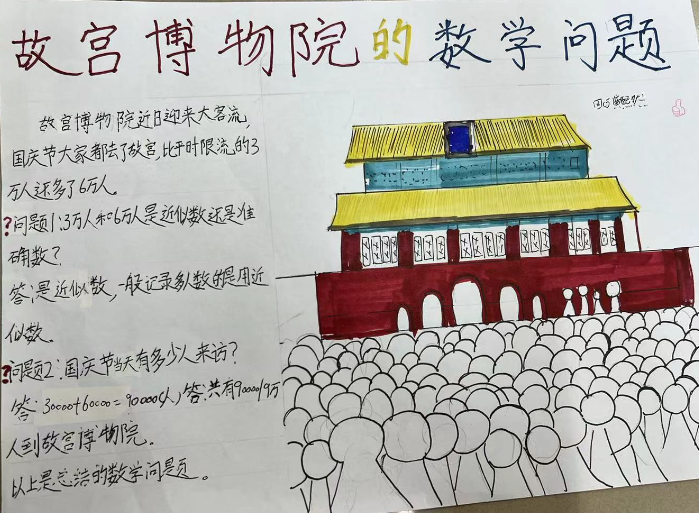 故宫博物院的数学问题
故宫博物院近日迎来大客流,
国庆节大家都去了故宫,比平时限流的3
万人还多了6万人。
?问题1:3万人和6万人是近似数还是准
确数?
答:是近似数,一般记录多人数的是用近
似数.
?问题2:国庆节当天有多少人来访?
答:30000+60000=90000(人)答:共有90000/9万
人到故宫博物院.
以上是总结的数学问题。